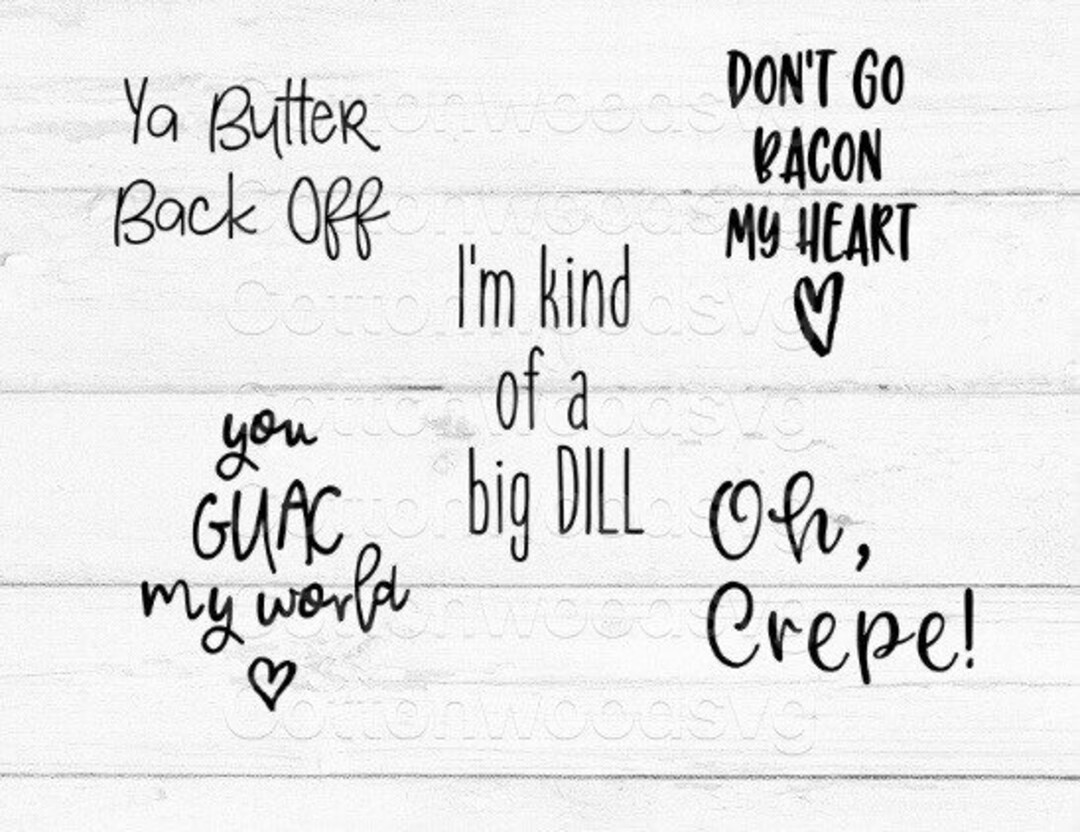 Ya Butter
Back Off
DON'T GO
BACON
MY HEART
I'm kind
of a
big DILL
you
GUAC
my world
Oh,
Crepe!
CottonwoodSvg
CottonwoodSvg
CottonwoodSvg
CottonwoodSvg
CottonwoodSvg
CottonwoodSvg
CottonwoodSvg